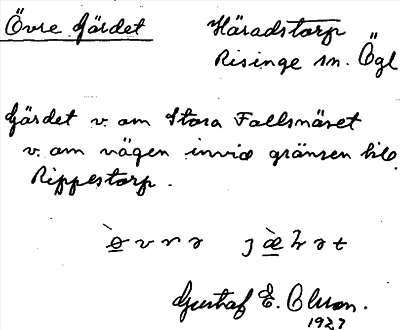 Övre Gärdet Häradstorp
Risinge sn. Ögl
Gärdet v. om Stora Fallsnäset
v. om vägen invid gränsen till
Rippestorp.
Gustaf E. Olsson.
1927